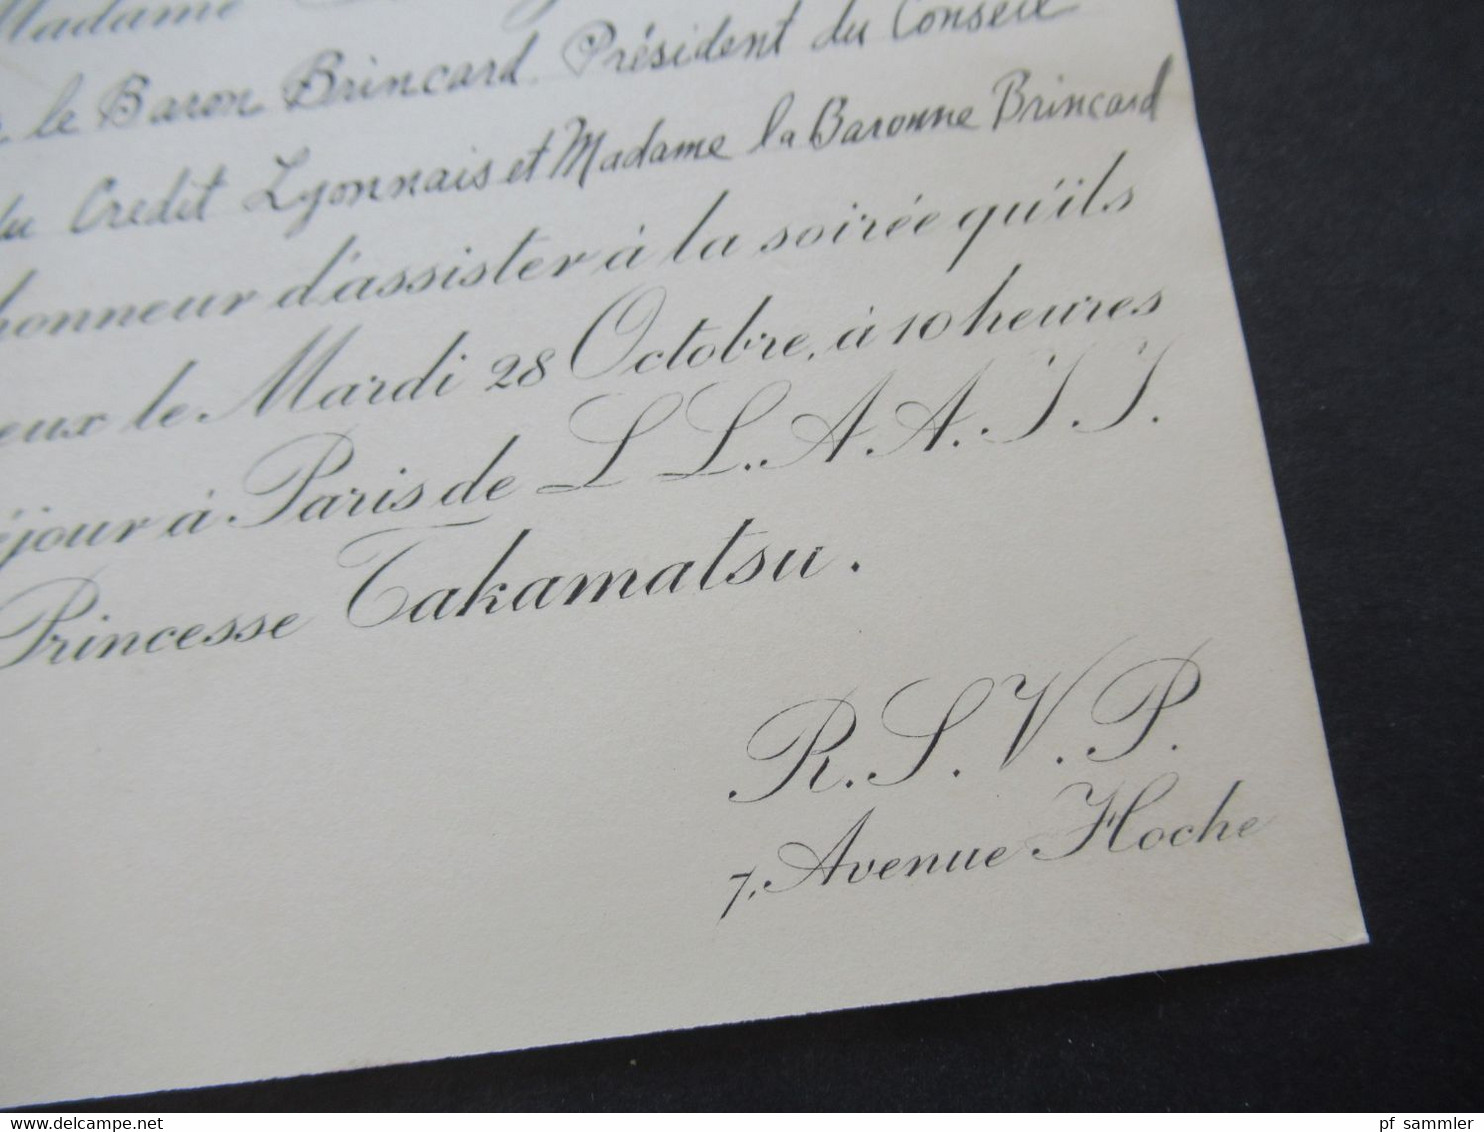 Madame
le Baron Brincard Président du Conseil
du Credit Lyonnais et Madame la Baronne Brincard
honneur d'assister à la soirée qu'ils
eux le Mardi 28 Octobre, à 10 heures
éjour à Paris de LL.AA.II.
Princesse Takamatsu.
R.S.V.P.
7, Avenue Hoche
www.delcampe.net
pf_sammler